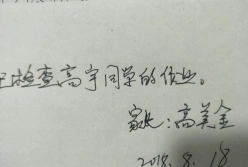 已检查高宇同学的作业。
家长:高美全
2018.8.18